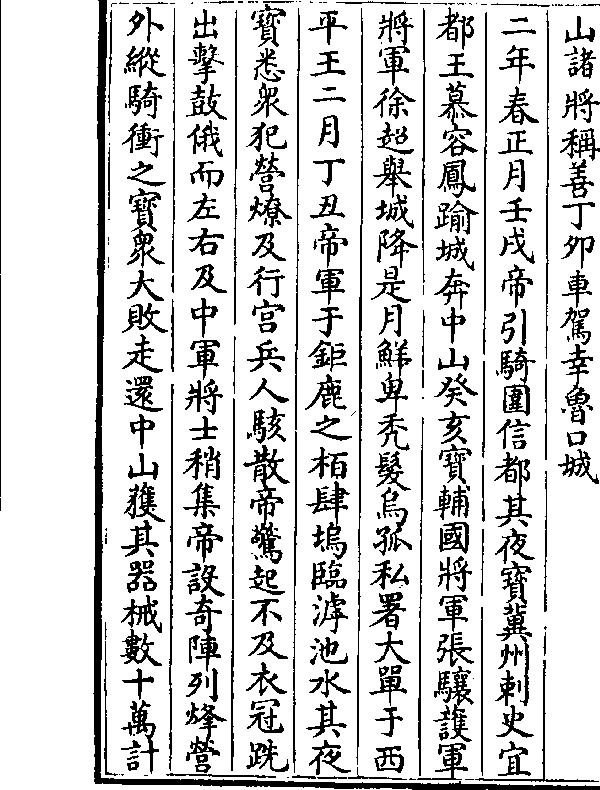 山諸將稱善丁卯車駕幸魯口城
二年春正月壬戌帝引騎圍信都其夜寶冀州刺史宜
都王慕容鳳踰城奔中山癸亥寶輔國將軍張驤護軍
將軍徐超舉城降是月鮮卑禿髮烏孤私署大單于西
平王二月丁丑帝軍于鉅鹿之栢肆塢臨滹池水其夜
寶悉衆犯營燎及行宫兵人駭散帝驚起不及衣冠跣
出擊鼓俄而左右及中軍將士稍集帝設奇陣列烽營
外縱騎衝之寶衆大敗走還中山獲其器械數十萬計